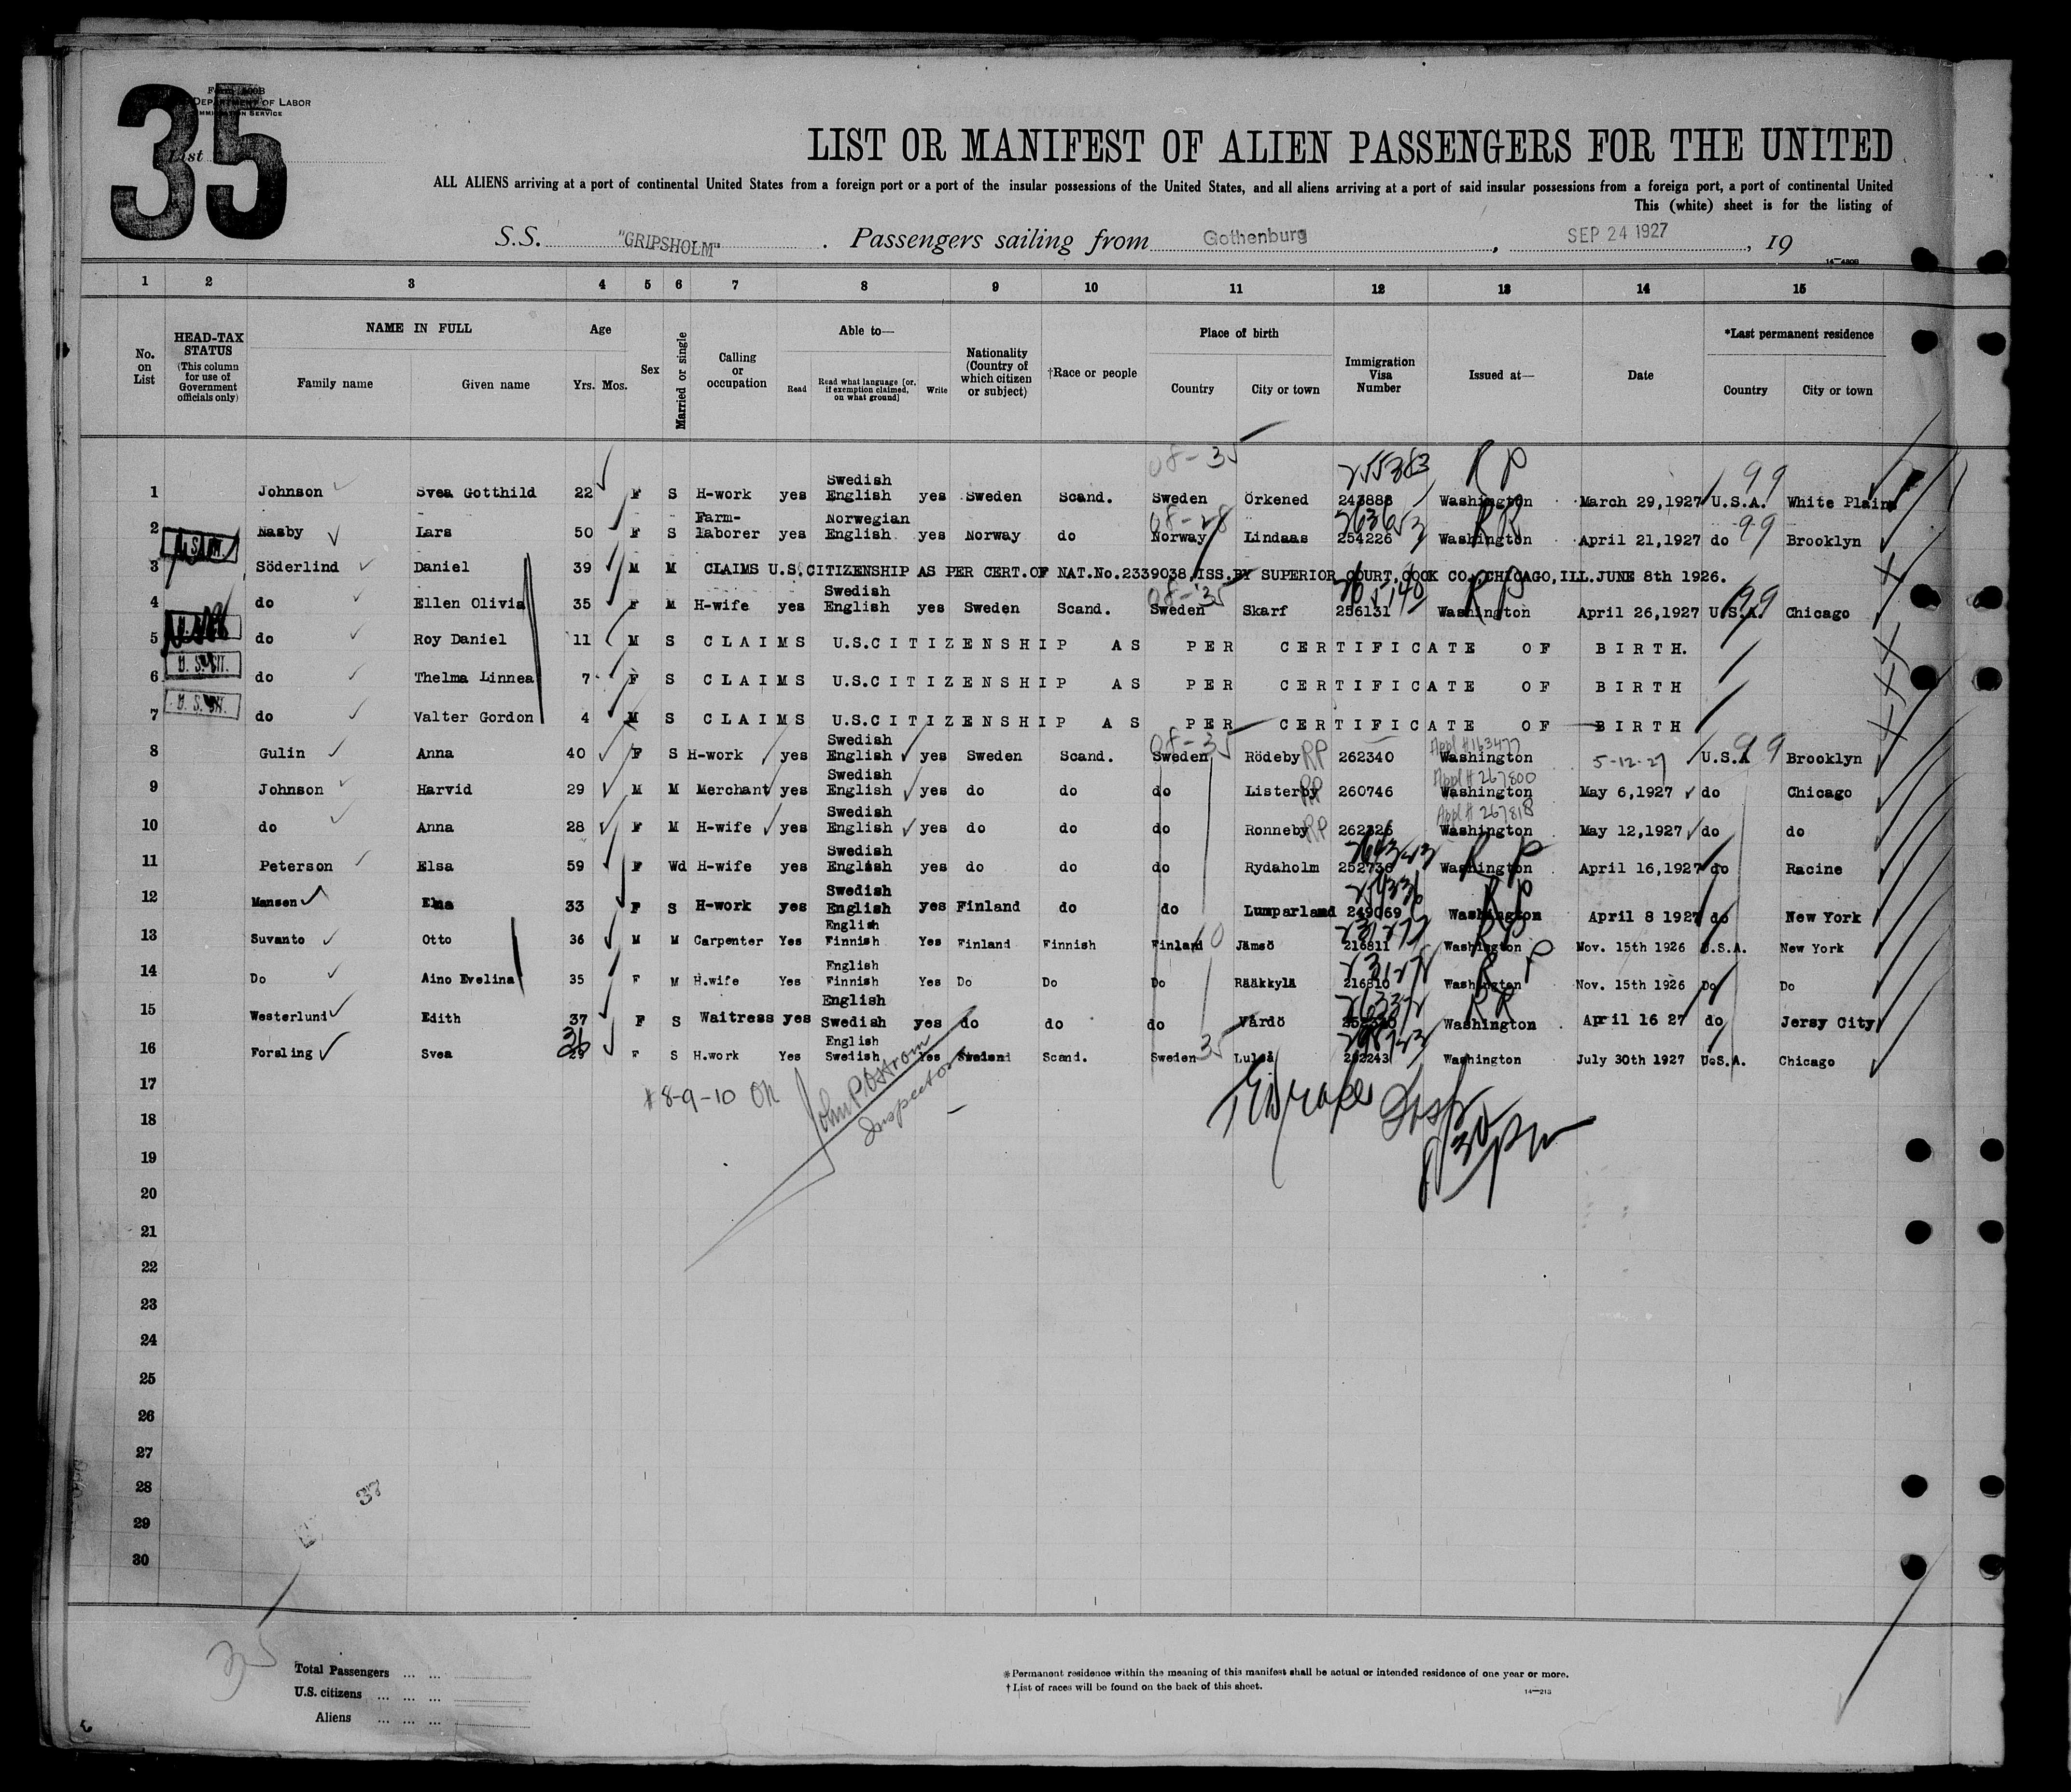 35
Form 500B
Department of Labor
Immigration Service
List
LIST OR MANIFEST OF ALIEN PASSENGERS FOR THE UNITED
ALL ALIENS arriving at a port of continental United States from a foreign port or a port of the insular possessions of the United States, and all aliens arriving at a port of said insular possessions from a foreign port, a port of continental United
This (white) sheet is for the listing of
S.S. "GRIPSHOLM" . Passengers sailing from Gothenburg, SEP 24 1927, 19
1 2 3 4 5 6 7 8 9 10 11 12 13 14 15
No. on List
HEAD-TAX STATUS (This column for use of Government officials only)
NAME IN FULL Family name Given name
Age Yrs. Mos.
Sex
Married or single
Calling or occupation
Able to— Read Read what language [or, if exemption claimed, on what ground] Write
Nationality (Country of which citizen or subject)
†Race or people
Place of birth Country City or town
Immigration Visa Number
Issued at—
Date
*Last permanent residence Country City or town
08-35 255383 R P 99
1 Johnson Svea Gotthild 22 F S H-work yes Swedish English yes Sweden Scand. Sweden Örkened 243888 Washington March 29,1927 U.S.A. White Plains
2 Nasby Lars 50 F S Farm-laborer yes Norwegian English yes Norway do Norway Lindaas 254226 Washington April 21,1927 do 99 Brooklyn
3 Söderlind Daniel 39 M M CLAIMS U.S.CITIZENSHIP AS PER CERT.OF NAT.No.2339038 ISS.BY SUPERIOR COURT,COOK CO.,CHICAGO,ILL.JUNE 8th 1926.
4 do Ellen Olivia 35 F M H-wife yes Swedish English yes Sweden Scand. 08-35 Sweden Skarf 256131 Washington R P April 26,1927 U.S.A. 99 Chicago
5 do Roy Daniel 11 M S CLAIMS U.S.CITIZENSHIP AS PER CERTIFICATE OF BIRTH.
U.S.CIT.
6 do Thelma Linnea 7 F S CLAIMS U.S.CITIZENSHIP AS PER CERTIFICATE OF BIRTH
U.S.CIT.
7 do Valter Gordon 4 M S CLAIMS U.S.CITIZENSHIP AS PER CERTIFICATE OF BIRTH
8 Gulin Anna 40 F S H-work yes Swedish English yes Sweden Scand. 08-35 Sweden Rödeby RP 262340 Appl #163477 Washington 5-12-27 U.S.A 99 Brooklyn
9 Johnson Harvid 29 M M Merchant yes Swedish English yes do do do Listerby RP 260746 Appl # 267800 Washington May 6,1927 do Chicago
10 do Anna 28 F M H-wife yes Swedish English yes do do do Ronneby RP 262326 Appl # 267818 Washington May 12,1927 do do
11 Peterson Elsa 59 F Wd H-wife yes Swedish English yes do do do Rydaholm 252736 Washington R P April 16,1927 do Racine
12 Mansen Elna 33 F S H-work yes Swedish English yes Finland do do Lumparland 249069 Washington R P April 8 1927 do New York
13 Suvanto Otto 36 M M Carpenter Yes English Finnish Yes Finland Finnish Finland Jämsö 216811 Washington R P Nov. 15th 1926 U.S.A. New York
14 Do Aino Evelina 35 F M H.wife Yes English Finnish Yes Do Do Do Rääkkylä 216810 Washington R P Nov. 15th 1926 Do Do
15 Westerlund Edith 37 F S Waitress yes English Swedish yes do do do Vårdö Washington April 16 27 do Jersy City
16 Forsling Svea 36 F S H.work Yes English Swedish Yes Sweden Scand. Sweden 35 Luleå 282243 Washington July 30th 1927 U.S.A. Chicago
17
# 8-9-10 OK John P. Ostrom
Inspector
18
19
20
21
22
23
24
25
26
27
28
37
29
30
35
Total Passengers ... ...
U.S. citizens ... ... ...
Aliens ... ... ...
*Permanent residence within the meaning of this manifest shall be actual or intended residence of one year or more.
†List of races will be found on the back of this sheet.
14—213